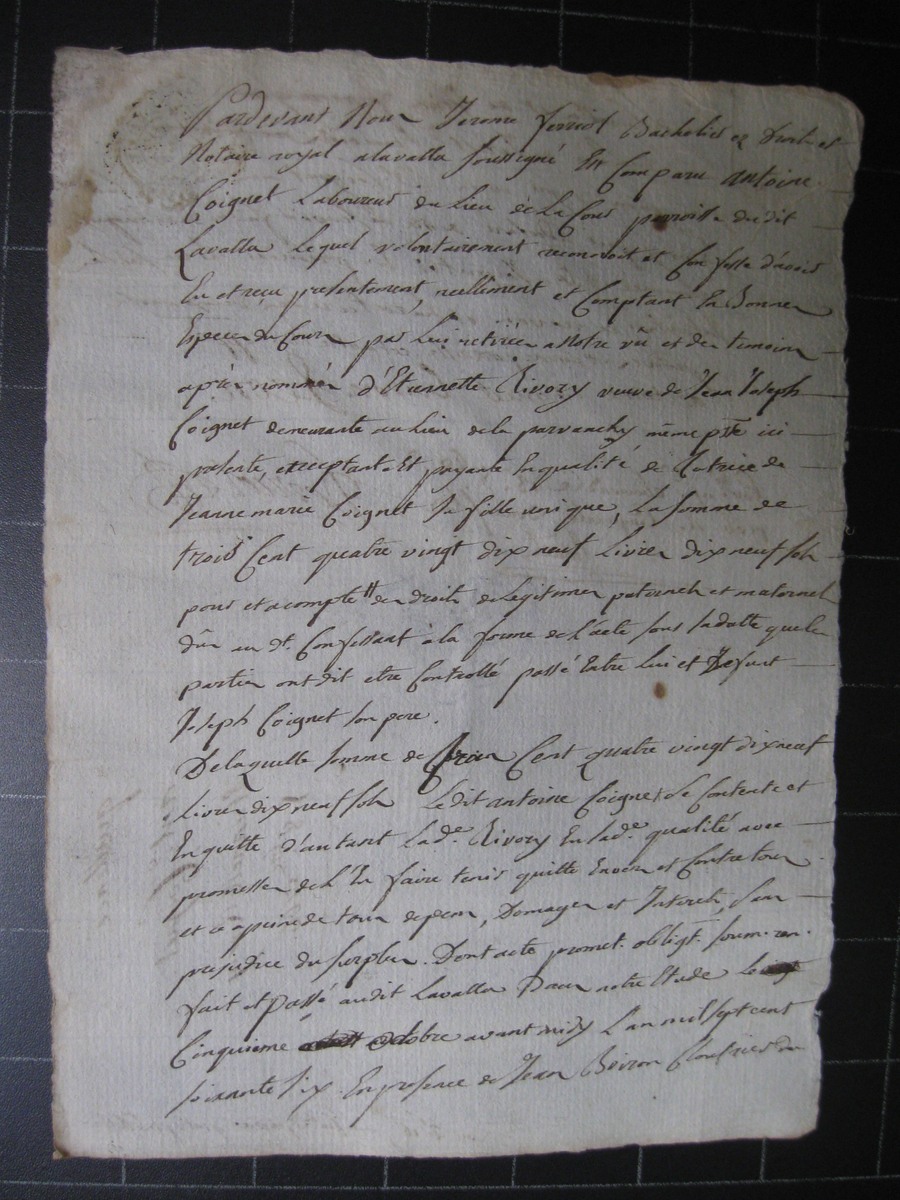 Pardevant Nous Jerome ferriol Bachelier es Droits et
Notaire royal a lavalla soussigné En Comparu antoine
Coignet Laboureur du Lieu de La Cour parroisse dudit
Lavalla Lequel volontairement reconnoit et Confesse d'avoir
Eu et recu presentement, reellement et Comptant En Bonnes
Especes du Cours par Lui retirées a Notre vü et des temoins
après nommés d'Etiennette Rivory veuve de Jean Joseph
Coignet demeurante au Lieu de la parvanchy même psse ici
presente, acceptante Et payante En qualité de Tutrice de
Jeanne marie Coignet sa fille unique, La somme de
trois Cent quatre vingt dix neuf Livres dix neuf sols
pour et acompte des droits de Legitimes paternels et maternels
dûs au dt. Confessant a la forme de l'acte sous sa datte que les
parties ont dit etre Controllé passé Entre Lui et Defunt
Joseph Coignet son pere.
De laquelle somme de trois Cent quatre vingt dix neuf
Livres dix neuf sols Ledit antoine Coignet se Contente et
En quitte d'autant Lade. Rivory En sade. qualité avec
promesse de L'En faire tenir quitte Envers et Contre tous
et ce a peine de tous depens, Domages et Interets, sans
prejudice du surplus. Dont acte promet. obligt. soum. ren.
fait et Passé audit Lavalla Dans notre Etude Le
Cinquieme octobre avant midy L'an mil sept cent
soixante six. En presence de Jean Boiron Cloutier du